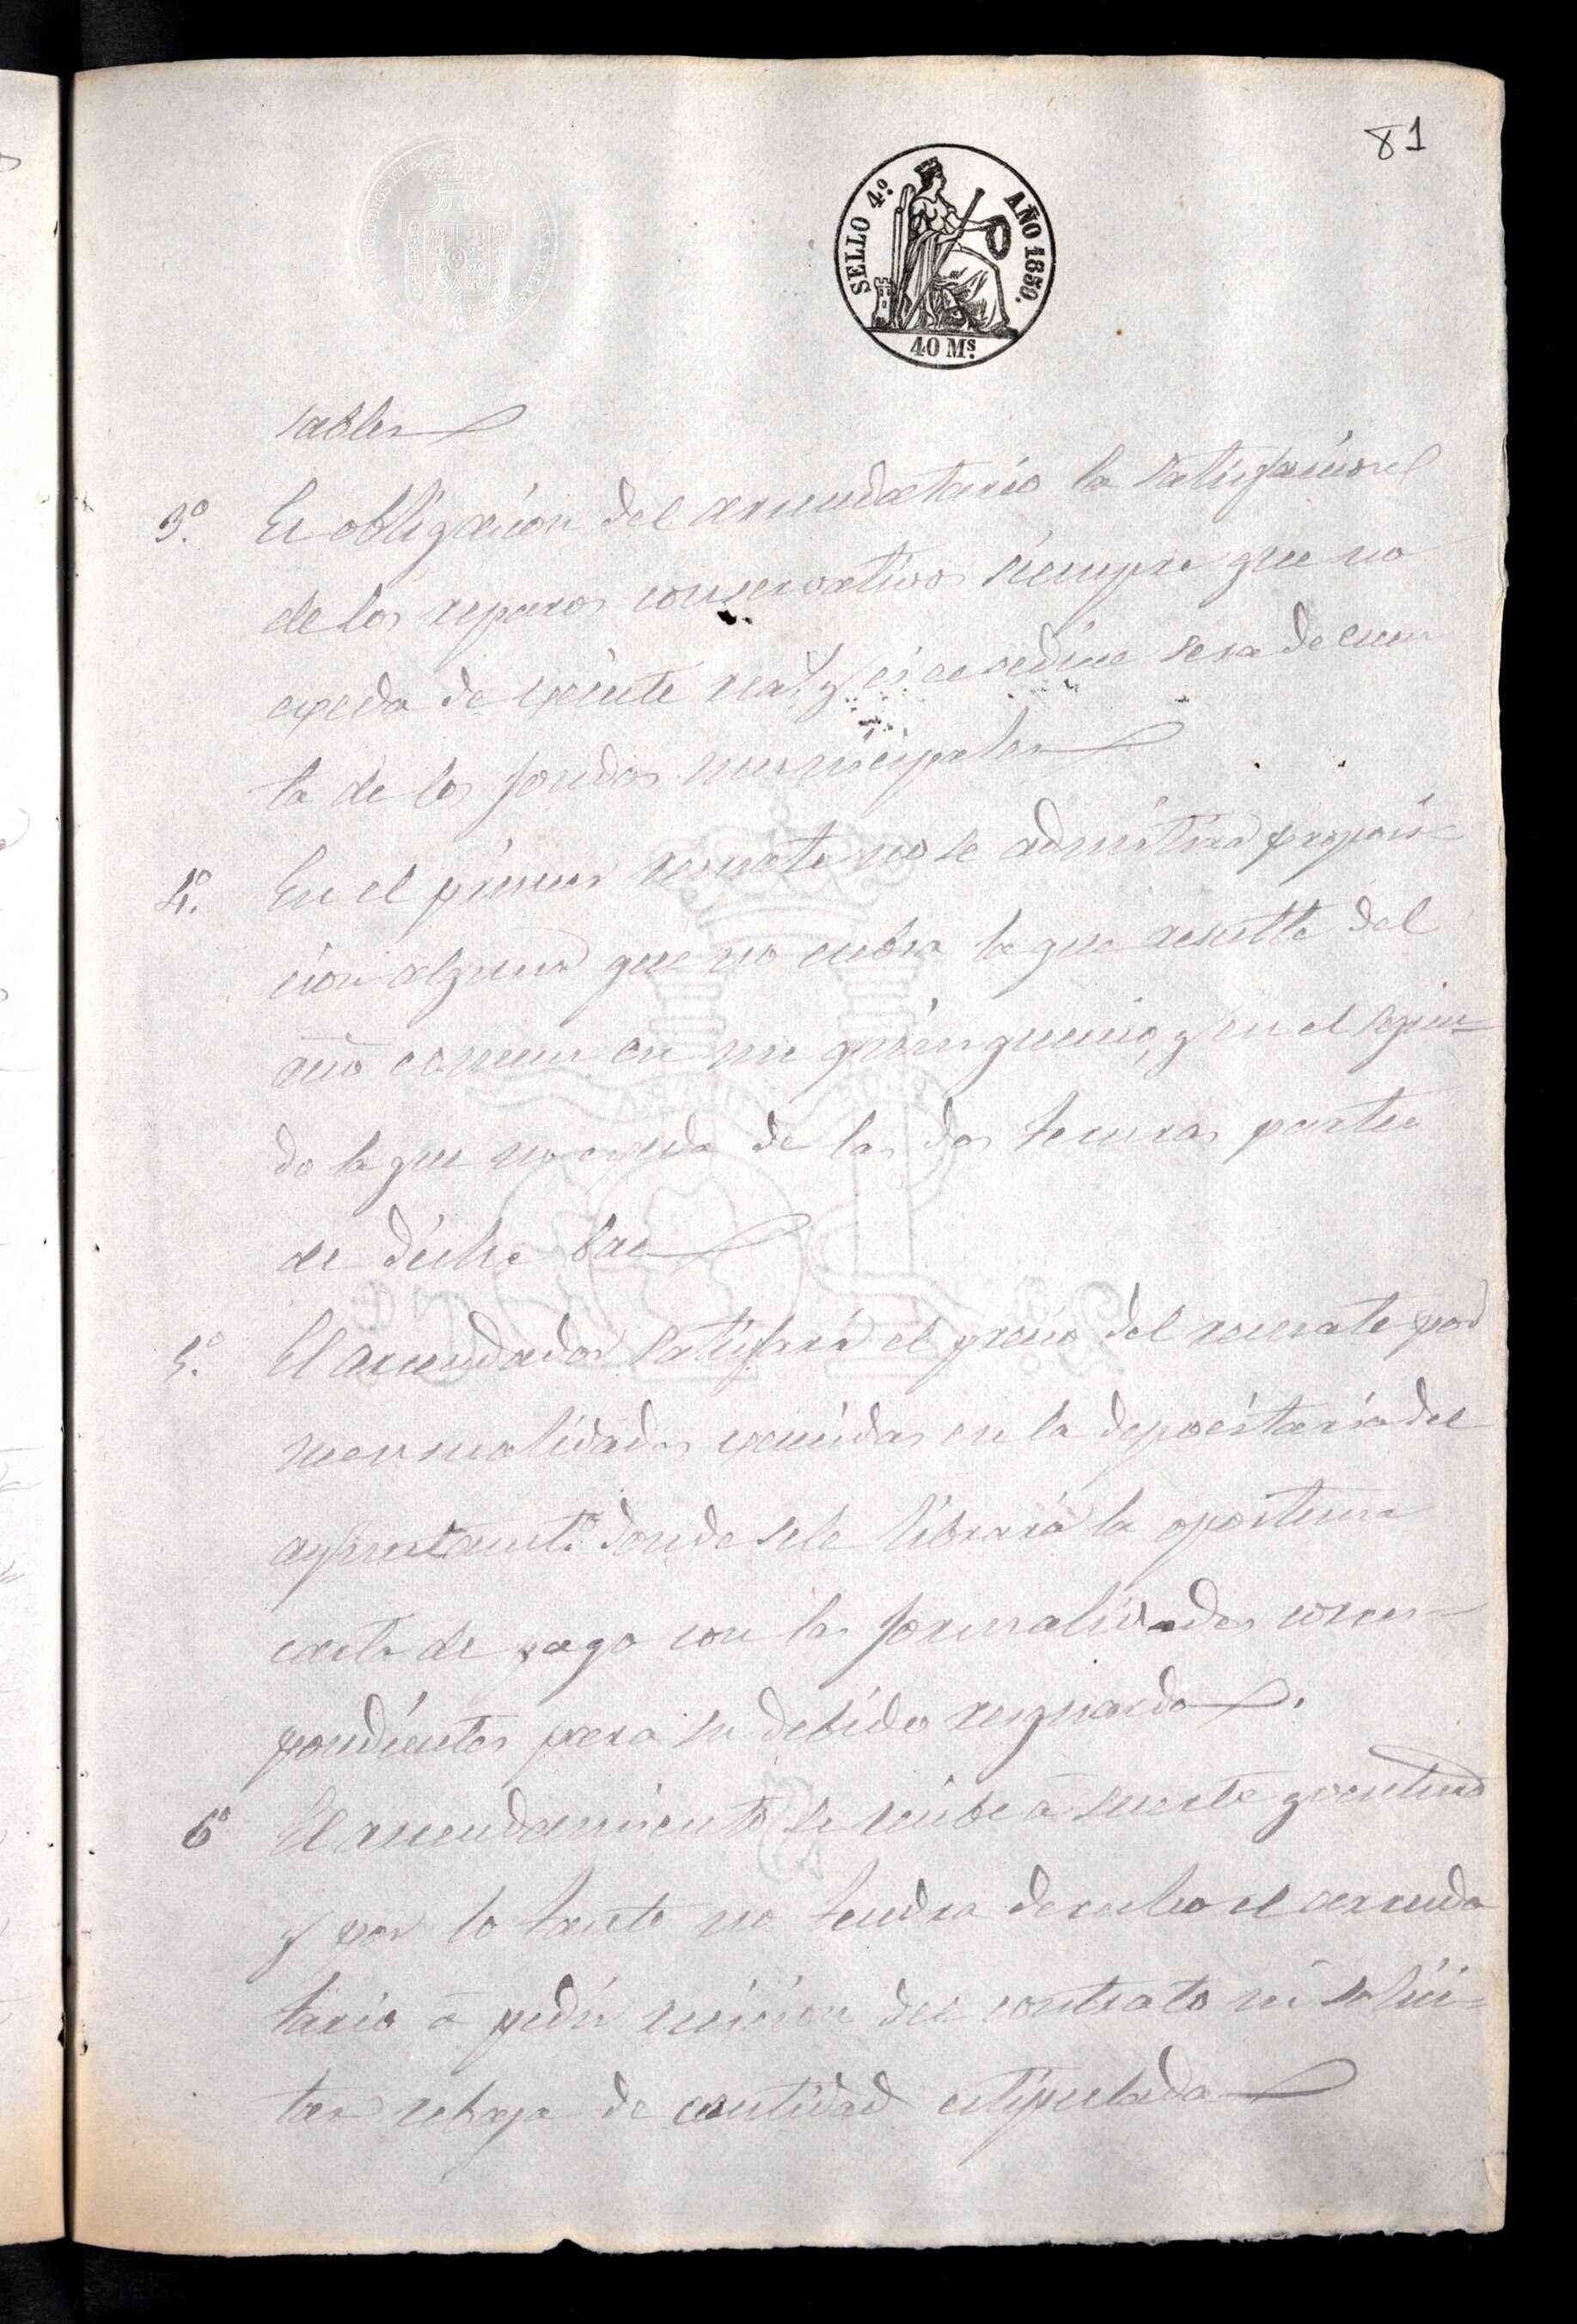 81
SELLO 4º. AÑO 1850.
40 Ms.
sables
3º. Es obligacion del arrendatario la satisfacion
de los reparos conservativos siempre que no
esceda de veinte real y si escediese sera de cuen
ta de los fondos municipales
4º. En el primer remate no se admitira proposi=
cion alguna que no cubra la que resulte del
año comun en un quinquenio, y en el segun=
do la que no esceda de las dos terceras partes
de dicha base
5º. El arrendador satisfará el precio del remate por
mensualidades vencidas en la depositaría del
ayuntamtº. donde sele librará la oportuna
carta de pago con las formalidades corres=
pondientes para su debido resguardo.
6º El arrendamiento se recibe á suerte y ventura
y por lo tanto no tendra derecho el arrenda
tario á pedir recision del contrato ni solici=
tar rebaja de cantidad estipulada